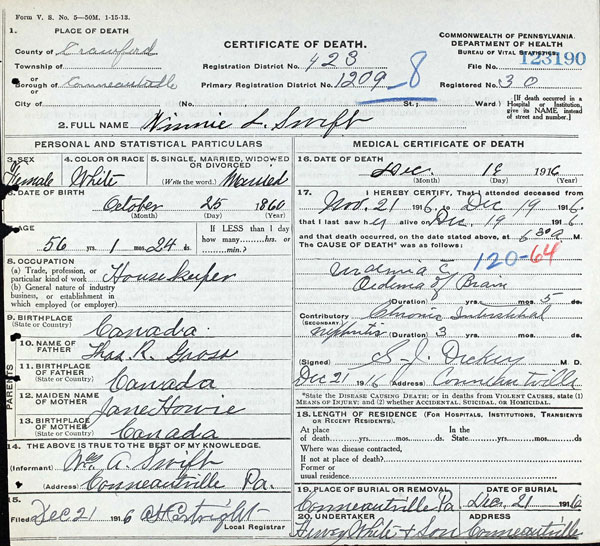 Form V. S. No. 5—50M. 1-15-13.
1. PLACE OF DEATH
County of Crawford
Township of
or
Borough of Conneautville
or
City of
CERTIFICATE OF DEATH.
Registration District No. 423
Primary Registration District No. 1209 -8
(No. St.; Ward)
COMMONWEALTH OF PENNSYLVANIA
DEPARTMENT OF HEALTH
BUREAU OF VITAL STATISTICS
File No. 123190
Registered No. 30
[If death occurred in a Hospital or Institution, give its NAME instead of street and number.]
2. FULL NAME Winnie L. Swift
PERSONAL AND STATISTICAL PARTICULARS
3. SEX
Female
4. COLOR OR RACE
White
5. SINGLE, MARRIED, WIDOWED OR DIVORCED
(Write the word.) Married
6. DATE OF BIRTH
October 25 1860
(Month) (Day) (Year)
AGE
56 yrs. 1 mos. 24 ds.
IF LESS than 1 day how many hrs. or min.?
8. OCCUPATION
(a) Trade, profession, or particular kind of work Housekeeper
(b) General nature of industry business, or establishment in which employed (or employer)
9. BIRTHPLACE
(State or Country) Canada
PARENTS
10. NAME OF FATHER Thos. R. Gross
11. BIRTHPLACE OF FATHER
(State or Country) Canada
12. MAIDEN NAME OF MOTHER Jane Howie
13. BIRTHPLACE OF MOTHER
(State or Country) Canada
14. THE ABOVE IS TRUE TO THE BEST OF MY KNOWLEDGE.
(Informant) A. Swift
(Address) Conneautville Pa.
15.
Filed Dec 21 1916
Local Registrar
MEDICAL CERTIFICATE OF DEATH
16. DATE OF DEATH
Dec. 19 1916
(Month) (Day) (Year)
17. I HEREBY CERTIFY, That I attended deceased from
Nov. 21 1916 to Dec 19 1916
that I last saw her alive on Dec. 19 1916
and that death occurred, on the date stated above, at 630 a. M.
The CAUSE OF DEATH* was as follows:
120-64
Uraemia c̄
Oedema of Brain
(Duration) yrs. mos. 5 ds.
Contributory Chronic Interstitial
(SECONDARY)
Nephritis (Duration) 3 yrs. mos. ds.
(Signed) S. J. Dickey M. D.
Dec 21 1916 (Address) Conneautville
*State the DISEASE CAUSING DEATH; or in deaths from VIOLENT CAUSES, state (1) MEANS OF INJURY; and (2) whether ACCIDENTAL, SUICIDAL, OR HOMICIDAL.
18. LENGTH OF RESIDENCE (FOR HOSPITALS, INSTITUTIONS, TRANSIENTS OR RECENT RESIDENTS).
At place of death yrs. mos. ds.
In the State yrs. mos. ds.
Where was disease contracted,
If not at place of death?
Former or usual residence
19. PLACE OF BURIAL OR REMOVAL
Conneautville Pa.
DATE OF BURIAL
Dec. 21 1916
20. UNDERTAKER
White & Son
ADDRESS
Conneautville